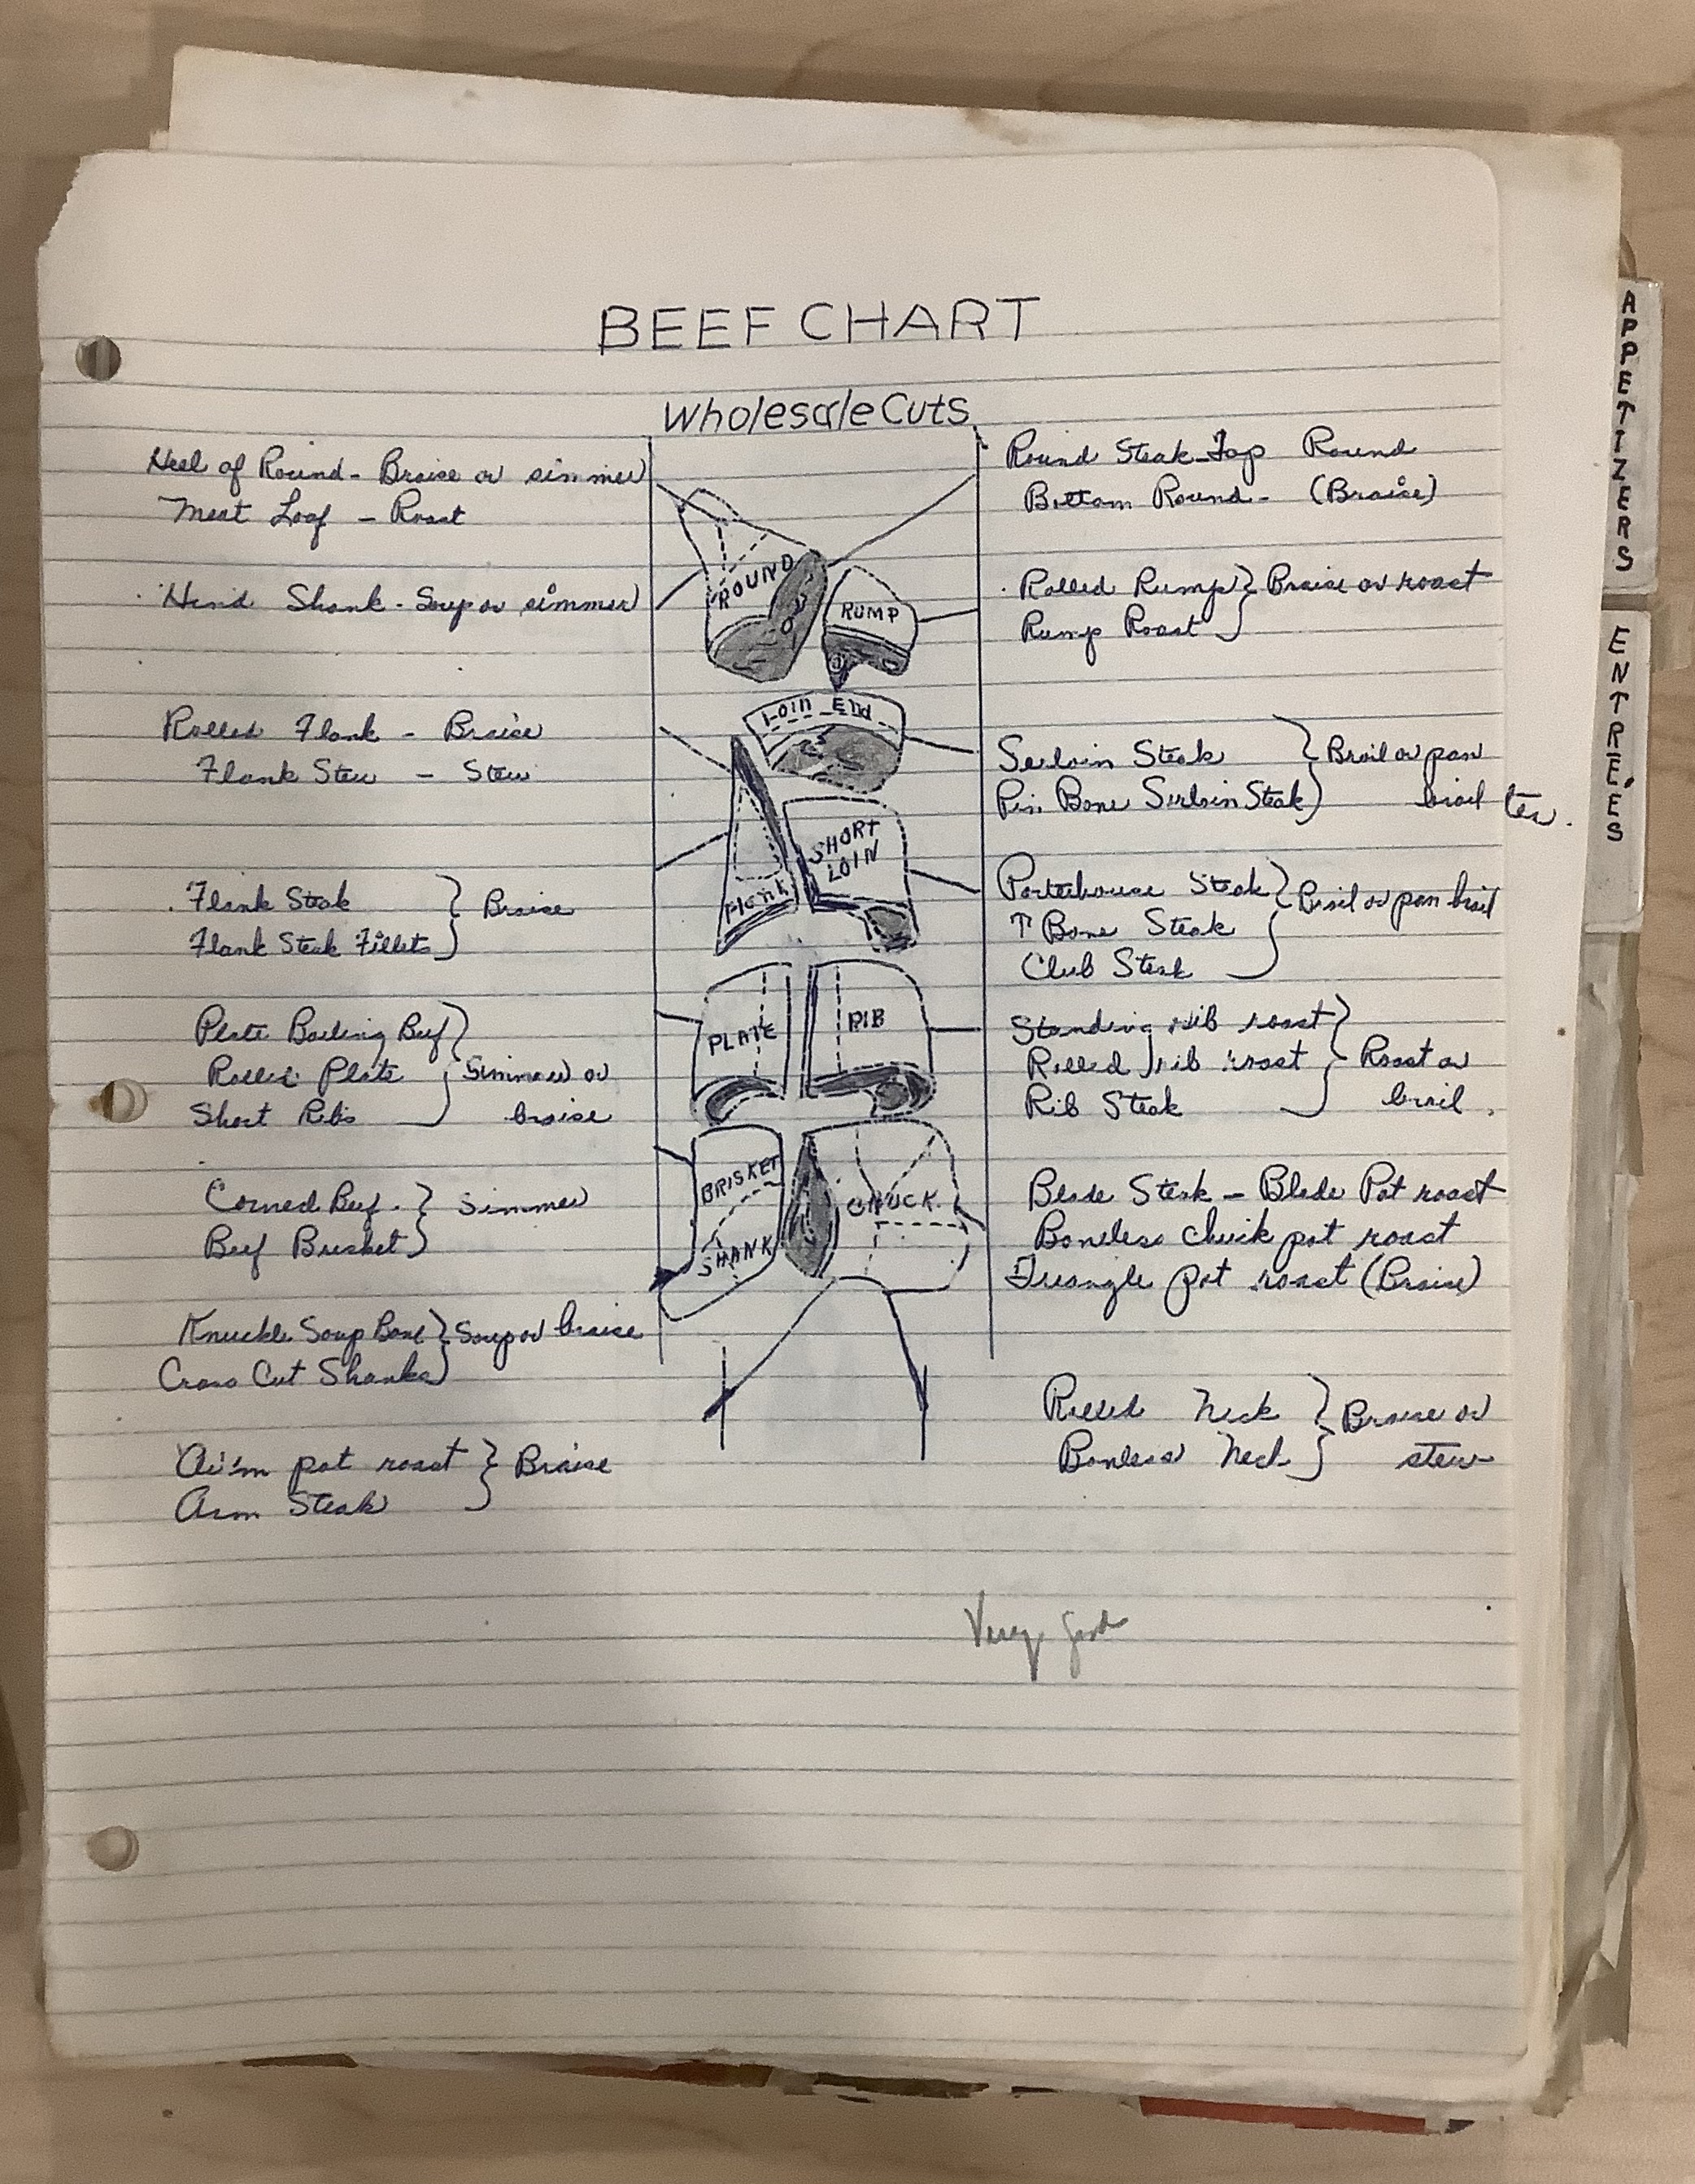 BEEF CHART
Wholesale Cuts
Heel of Round - Braise or simmer
Meat Loaf - Roast
Hind Shank - Soup or simmer
Rolled Flank - Braise
Flank Stew - Stew
Flank Steak } Braise
Flank Steak Fillets
Plate Boiling Beef
Rolled Plate } Simmer or
Short Ribs braise
Corned Beef } Simmer
Beef Brisket
Knuckle Soup Bone } Soup or braise
Cross Cut Shanks
Arm pot roast } Braise
Arm Steak
ROUND
RUMP
Loin End
SHORT
LOIN
Flank
PLATE
RIB
BRISKET
SHANK
CHUCK
Round Steak - Top Round
Bottom Round - (Braise)
Rolled Rump } Braise or roast
Rump Roast
Serloin Steak } Broil or pan
Pin Bone Sirloin Steak broil
Porterhouse Steak } Broil or pan broil
T Bone Steak
Club Steak
Standing rib roast
Rolled rib roast } Roast or
Rib Steak broil
Blade Steak - Blade Pot roast
Boneless chuck pot roast
Triangle pot roast (Braise)
Rolled Neck } Braise or
Boneless Neck stew
Very good
APPETIZERS
ENTRÉES